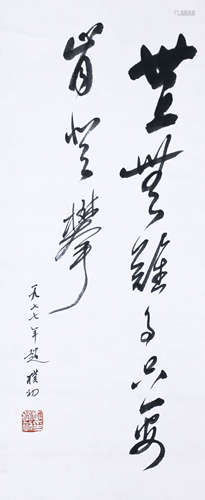 世上無難事只要
肯登攀
一九七七年趙樸初